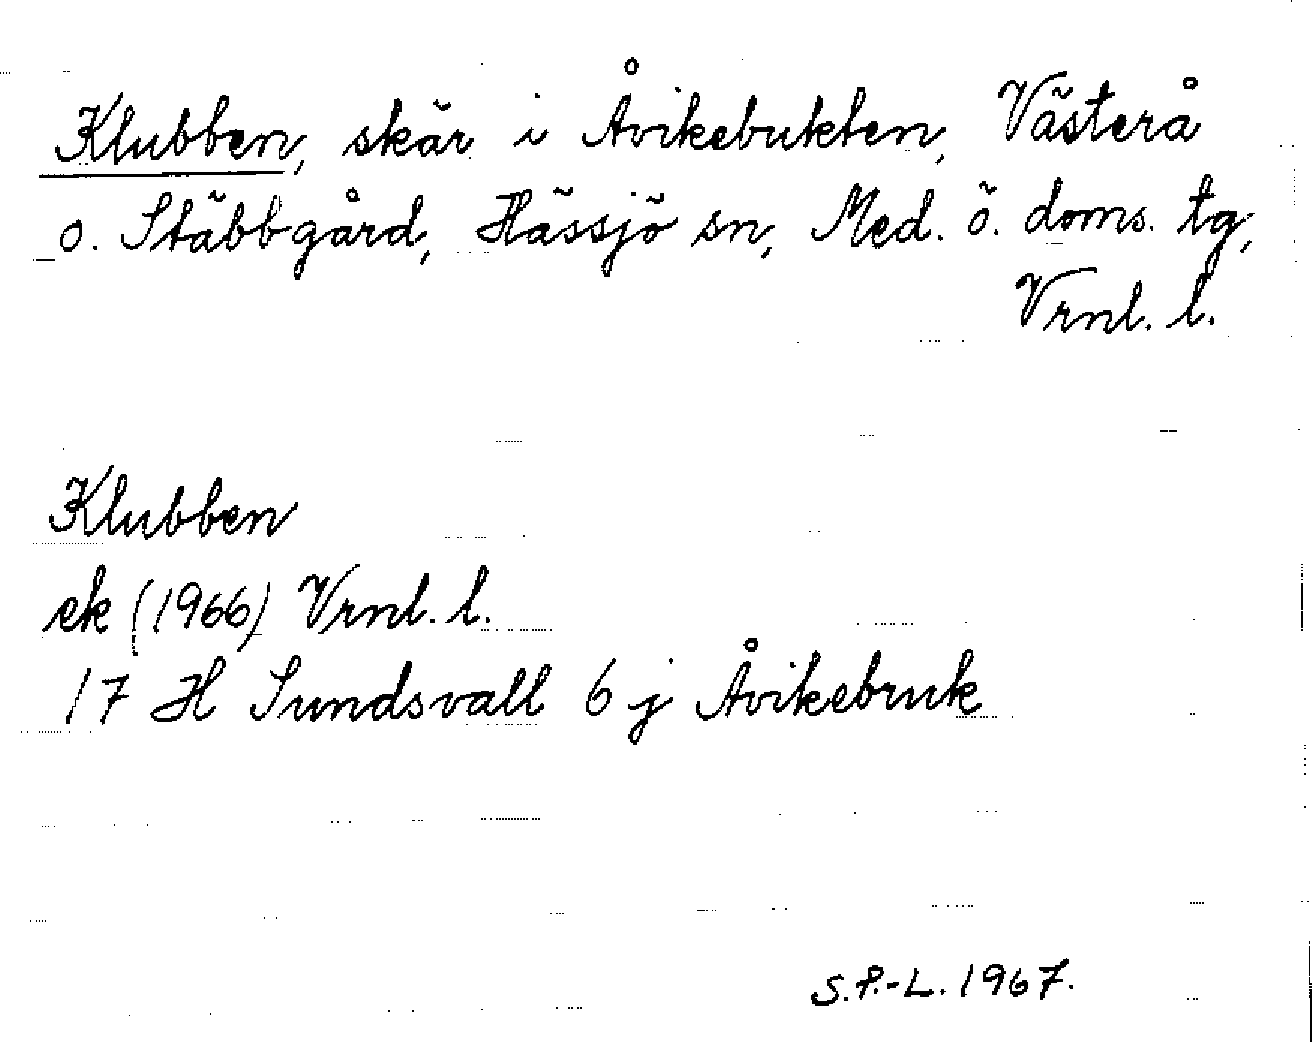 Klubben, skär i Åvikebukten, Västerå
o. Stäbbgård, Hässjö sn, Med. ö. doms. tg,
Vrnl. l.
Klubben
ek (1966) Vrnl. l.
17 H Sundsvall 6 j Åvikebruk
S.P.-L. 1967.